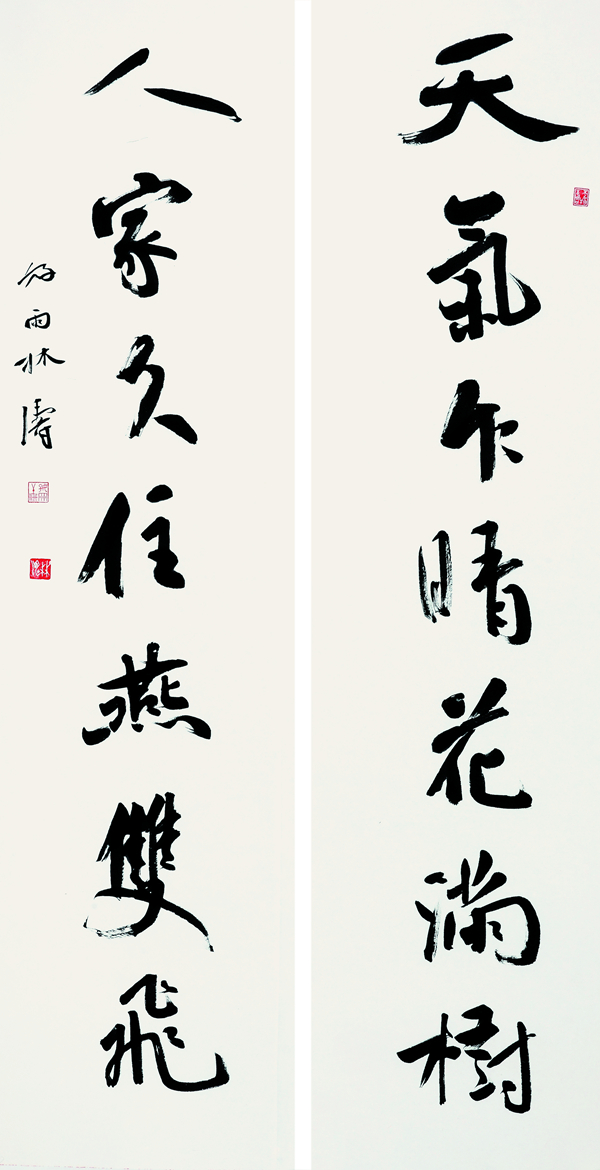 天氣乍晴花滿樹
人家久住燕雙飛
雨林濤